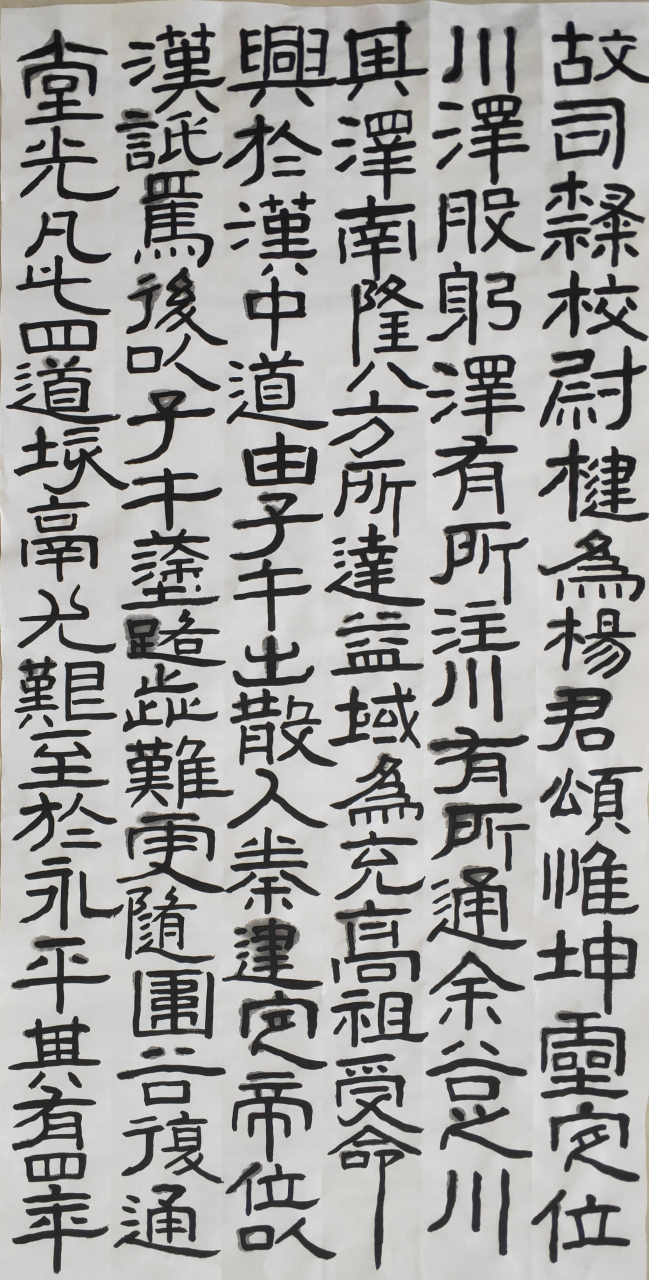 故司隸校尉楗為楊君頌惟坤靈定位
川澤股躬澤有所注川有所通余谷之川
其澤南隆八方所達益域為充高祖受命
興於漢中道由子午出散入秦建定帝位以
漢詆焉後以子午塗路歰難更隨圍谷復通
堂光凡此四道垓鬲尤艱至於永平其有四年